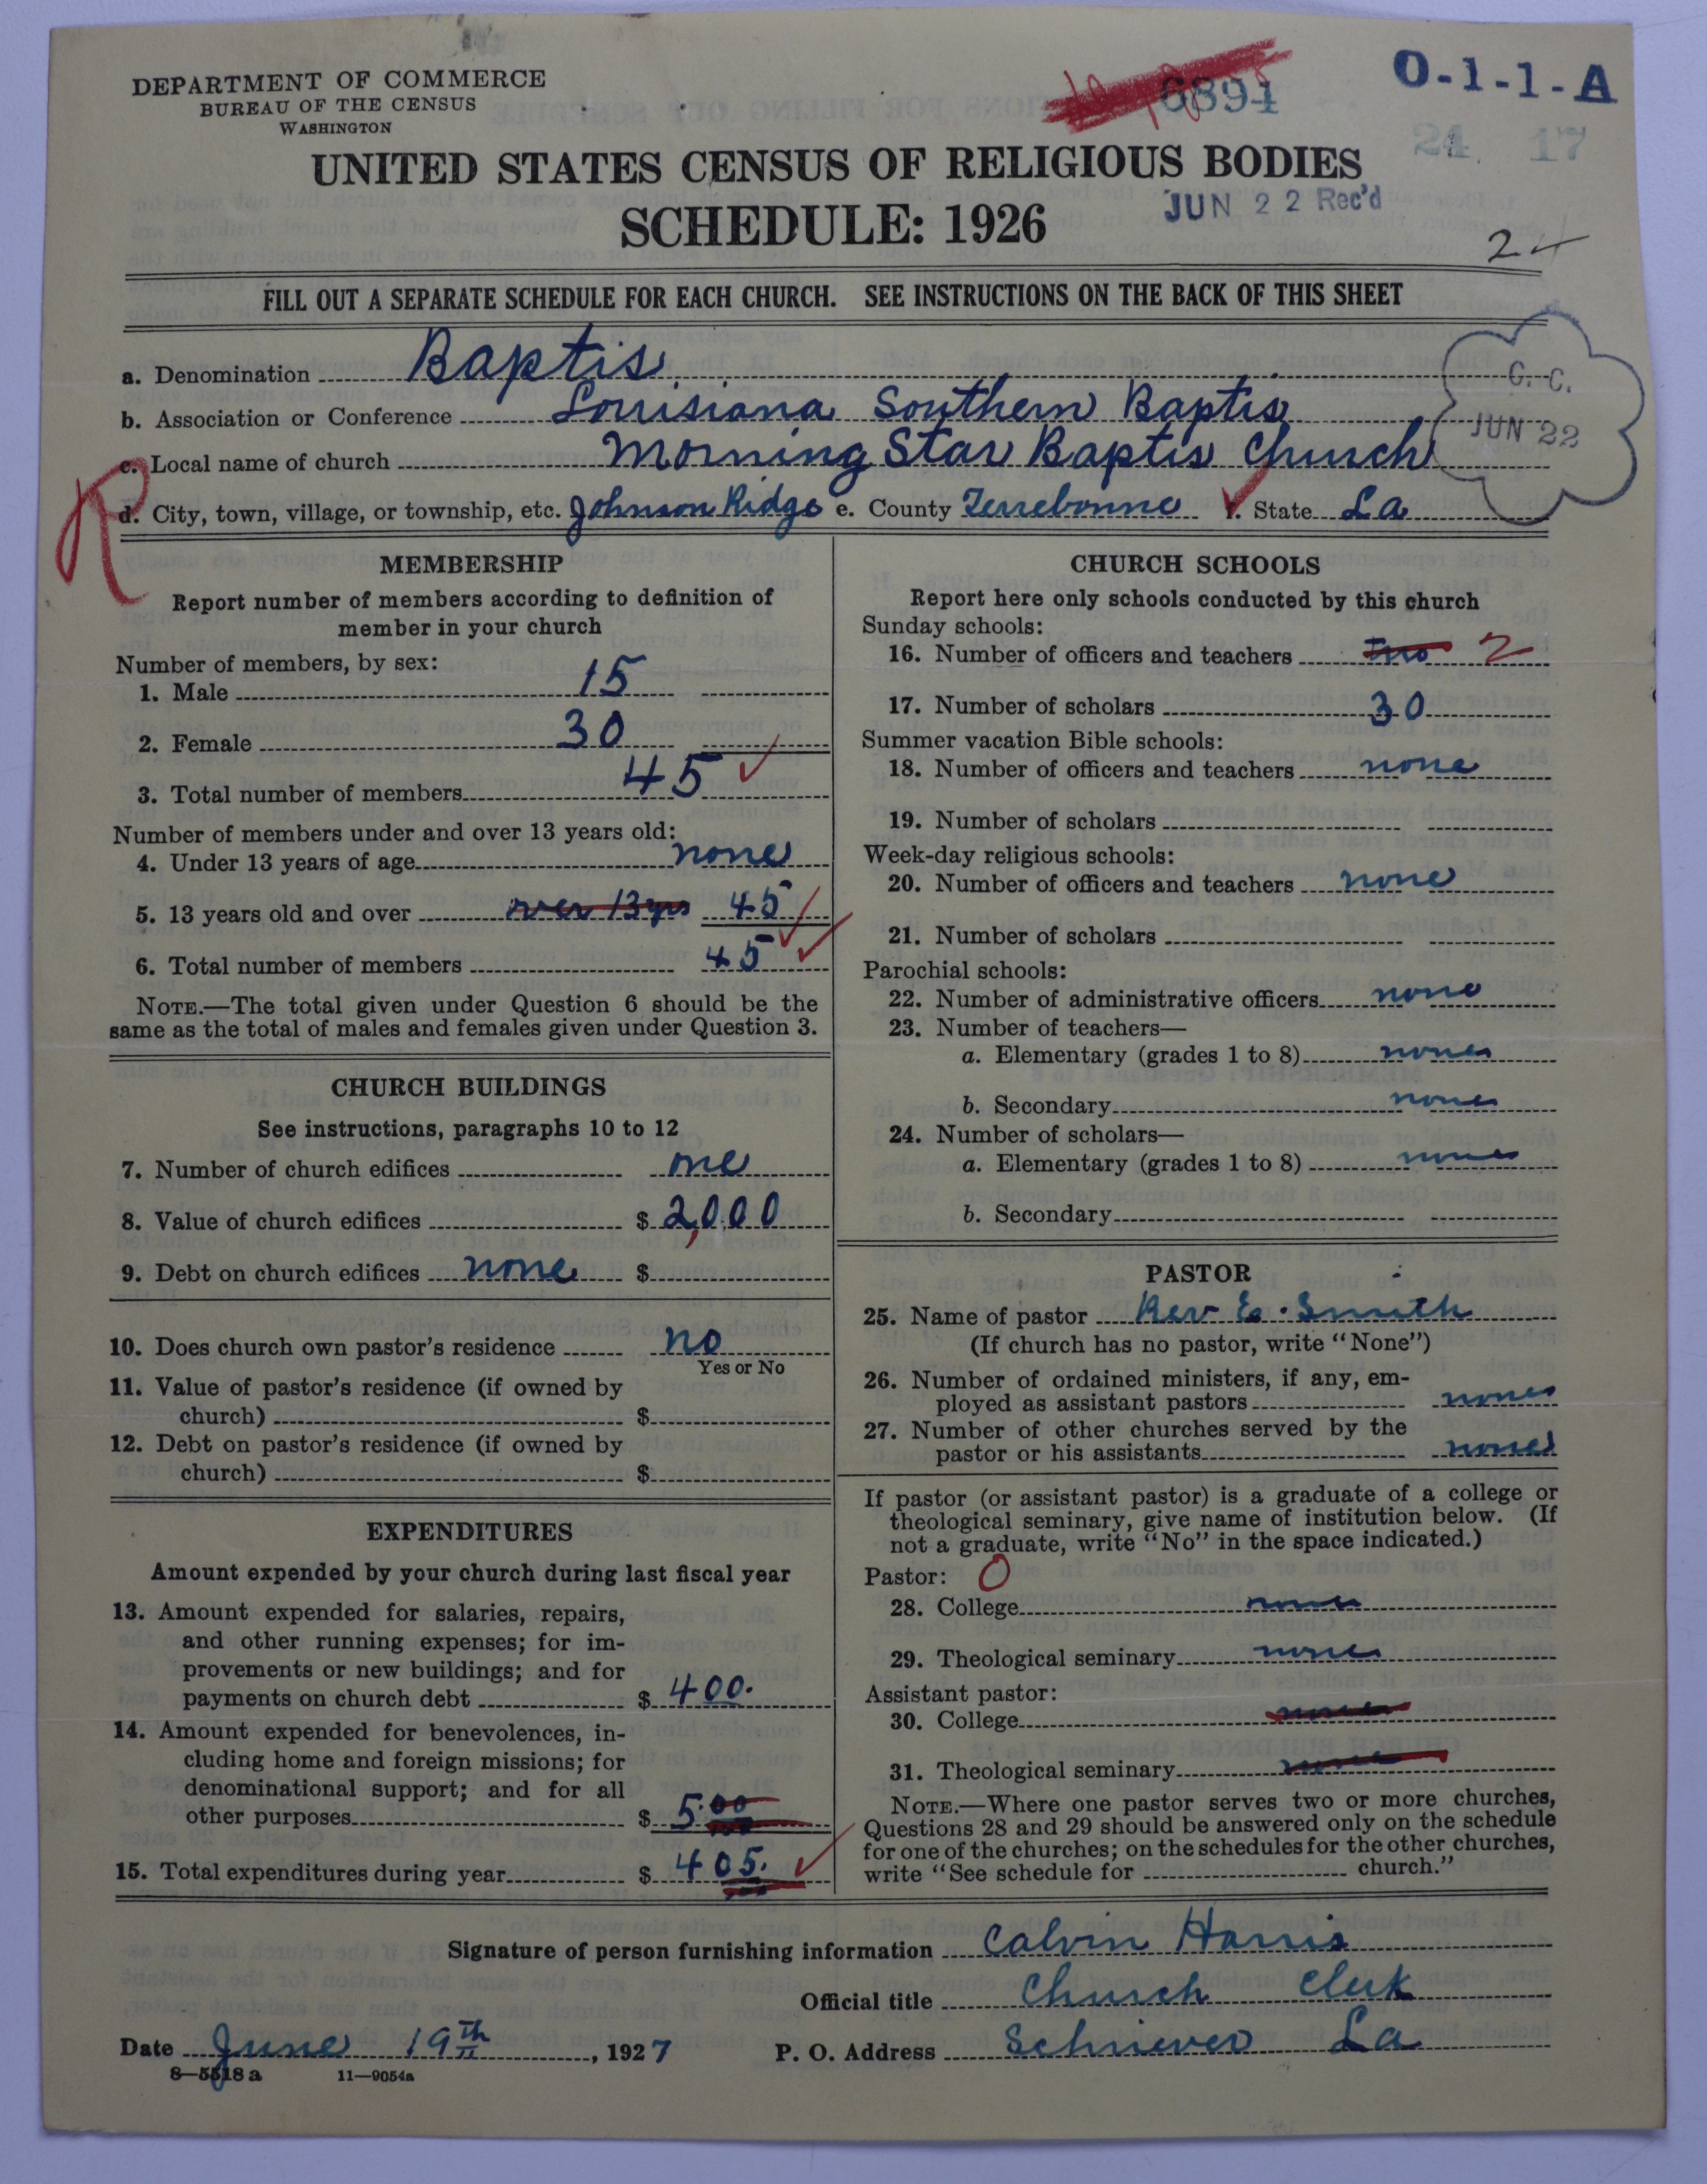 DEPARTMENT OF COMMERCE
BUREAU OF THE CENSUS
WASHINGTON
6894
O-1-1-A
24 17
UNITED STATES CENSUS OF RELIGIOUS BODIES
SCHEDULE: 1926
JUN 22 Rec'd
24
FILL OUT A SEPARATE SCHEDULE FOR EACH CHURCH. SEE INSTRUCTIONS ON THE BACK OF THIS SHEET
a. Denomination Baptis
b. Association or Conference Louisiana Southern Baptis
c. Local name of church Morning Star Baptis Church
d. City, town, village, or township, etc. Johnson Ridge e. County Terrebonne f. State La
G. C.
JUN 22
R
MEMBERSHIP
Report number of members according to definition of
member in your church
Number of members, by sex:
1. Male 15
2. Female 30
3. Total number of members 45
Number of members under and over 13 years old:
4. Under 13 years of age none
5. 13 years old and over over 13 yrs 45
6. Total number of members 45
NOTE.—The total given under Question 6 should be the
same as the total of males and females given under Question 3.
CHURCH BUILDINGS
See instructions, paragraphs 10 to 12
7. Number of church edifices one
8. Value of church edifices $ 2,000
9. Debt on church edifices none $
10. Does church own pastor's residence no
Yes or No
11. Value of pastor's residence (if owned by
church) $
12. Debt on pastor's residence (if owned by
church) $
EXPENDITURES
Amount expended by your church during last fiscal year
13. Amount expended for salaries, repairs,
and other running expenses; for im-
provements or new buildings; and for
payments on church debt $ 400.
14. Amount expended for benevolences, in-
cluding home and foreign missions; for
denominational support; and for all
other purposes $ 5.00
15. Total expenditures during year $ 405.
CHURCH SCHOOLS
Report here only schools conducted by this church
Sunday schools:
16. Number of officers and teachers Two 2
17. Number of scholars 30
Summer vacation Bible schools:
18. Number of officers and teachers none
19. Number of scholars
Week-day religious schools:
20. Number of officers and teachers none
21. Number of scholars
Parochial schools:
22. Number of administrative officers none
23. Number of teachers—
a. Elementary (grades 1 to 8) none
b. Secondary none
24. Number of scholars—
a. Elementary (grades 1 to 8) none
b. Secondary
PASTOR
25. Name of pastor Rev E. Smith
(If church has no pastor, write "None")
26. Number of ordained ministers, if any, em-
ployed as assistant pastors none
27. Number of other churches served by the
pastor or his assistants none
If pastor (or assistant pastor) is a graduate of a college or
theological seminary, give name of institution below. (If
not a graduate, write "No" in the space indicated.)
Pastor: O
28. College none
29. Theological seminary none
Assistant pastor:
30. College none
31. Theological seminary none
NOTE.—Where one pastor serves two or more churches,
Questions 28 and 29 should be answered only on the schedule
for one of the churches; on the schedules for the other churches,
write "See schedule for church."
Signature of person furnishing information Calvin Harris
Official title Church Clerk
Date June 19th, 1927 P. O. Address Schriever La
8—5518 a 11—9054a